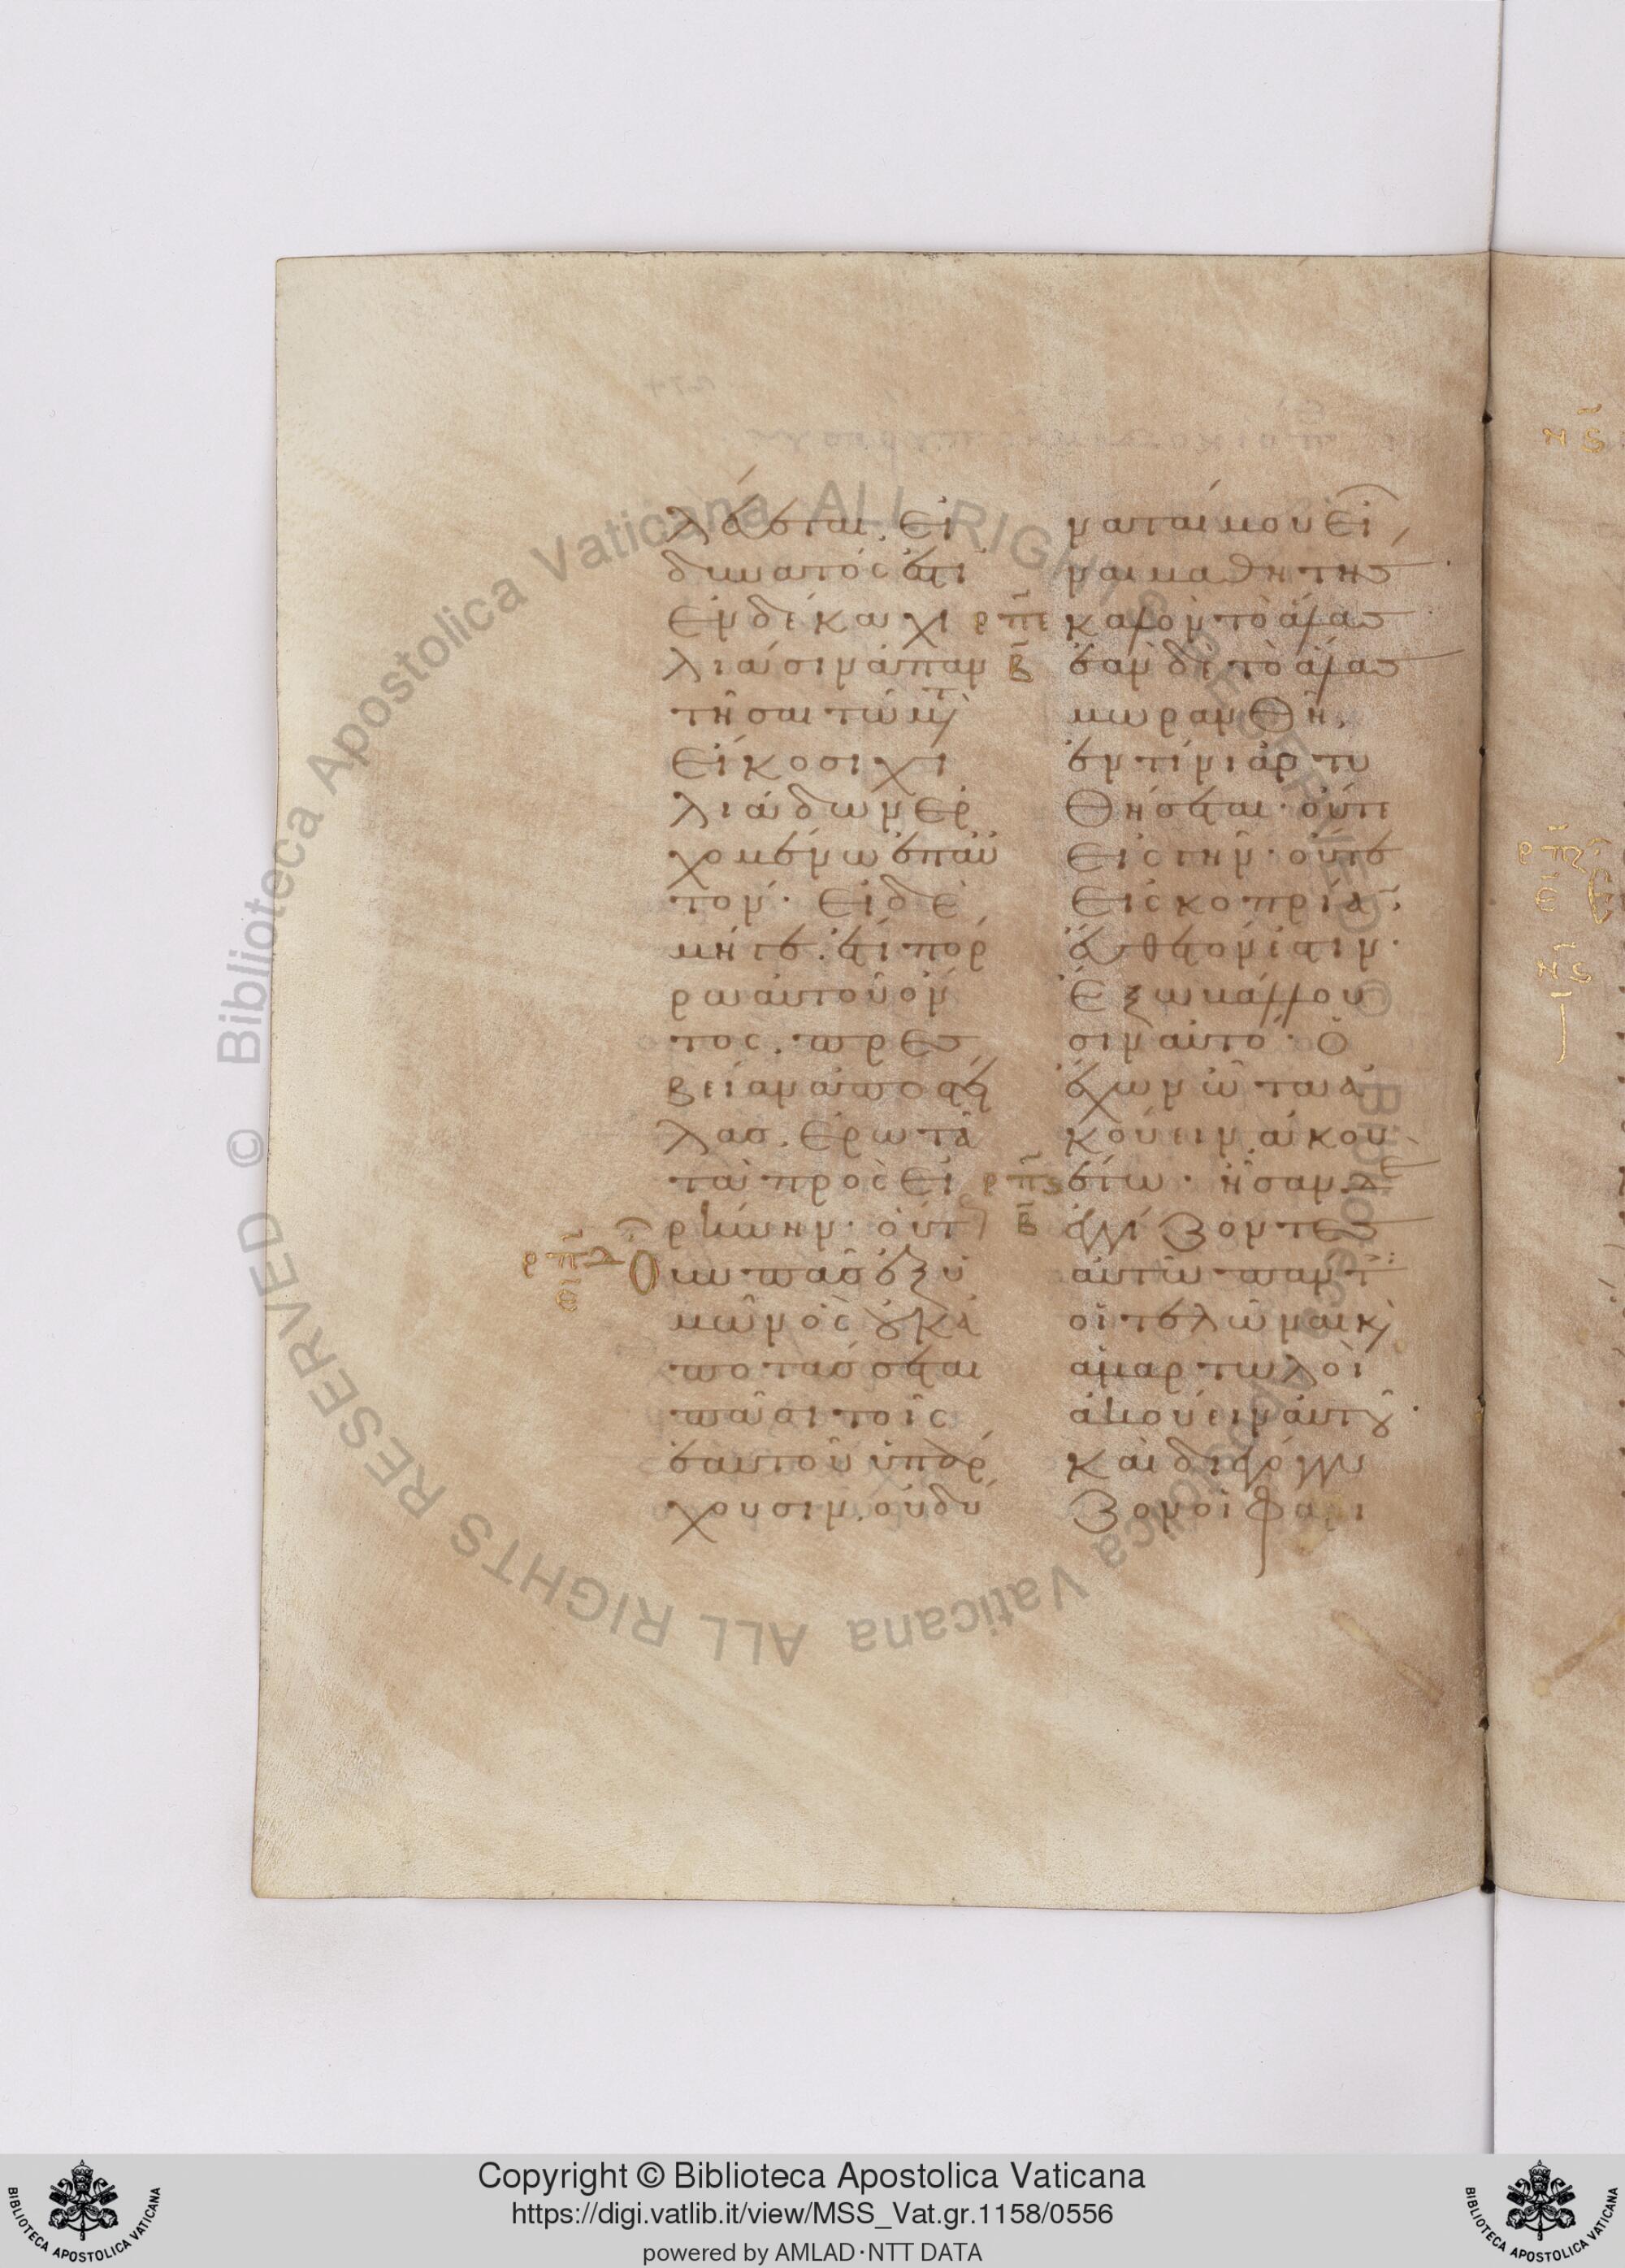 λεύεται· εἰ
δυνατός ἐστι
ἐν δέκα χι
λιάσιν ἀπαν
τῆσαι τῷ μετ(ὰ)
εἴκοσι χι
λιάδων ἐρ
χομένω ἐπαὐ
τόν· εἰδὲ
μήγε· ἔτι πόρ
ρω αὐτοῦ ὄν
τος. πρεσ
βείαν ἀποστεί
λας. ἐρωτᾶ
τὰ πρὸς εἰ
ρήνην· οὕτ(ως)
Οὖν πᾶς ἐξ ὑ
μῶν ὃς οὐκ ἀ
ποτάσσεται
πᾶσι τοῖς
ἑαυτοῦ ὑπάρ
χουσιν. οὐ δύ
ναταί μου εἶ
ναι μαθητής
καλὸν τὸ ἅλας
ἐὰν δὲ τὸ ἅλας
μωρανθῆ,
ἐν τίνι ἀρτυ
θήσεται· οὔτε
εἰς γῆν· οὔτε
εἰς κοπρίαν·
εὔθετόν ἐστιν·
ἔξω βάλλου
σιν αὐτό· ὁ
ἔχων ὦτα ἀ
κούειν ἀκου
έτω· ἦσαν δὲ
ἐγγίζοντες
αὐτῶ πάντ(ες)
οἱ τελῶναι κ(αὶ)
ἁμαρτωλοὶ
ἀκούειν αὐτοῦ·
καὶ διεγόγγυ
ζον οἱ φαρι
ρπδ
ρπε
β
ρπϛ
β
© Biblioteca Apostolica Vaticana ALL RIGHTS RESERVED © Biblioteca Apostolica Vaticana ALL RIGHTS RESERVED
Copyright © Biblioteca Apostolica Vaticana
https://digi.vatlib.it/view/MSS_Vat.gr.1158/0556
powered by AMLAD·NTT DATA
BIBLIOTECA APOSTOLICA VATICANA
BIBLIOTECA APOSTOLICA VATICANA